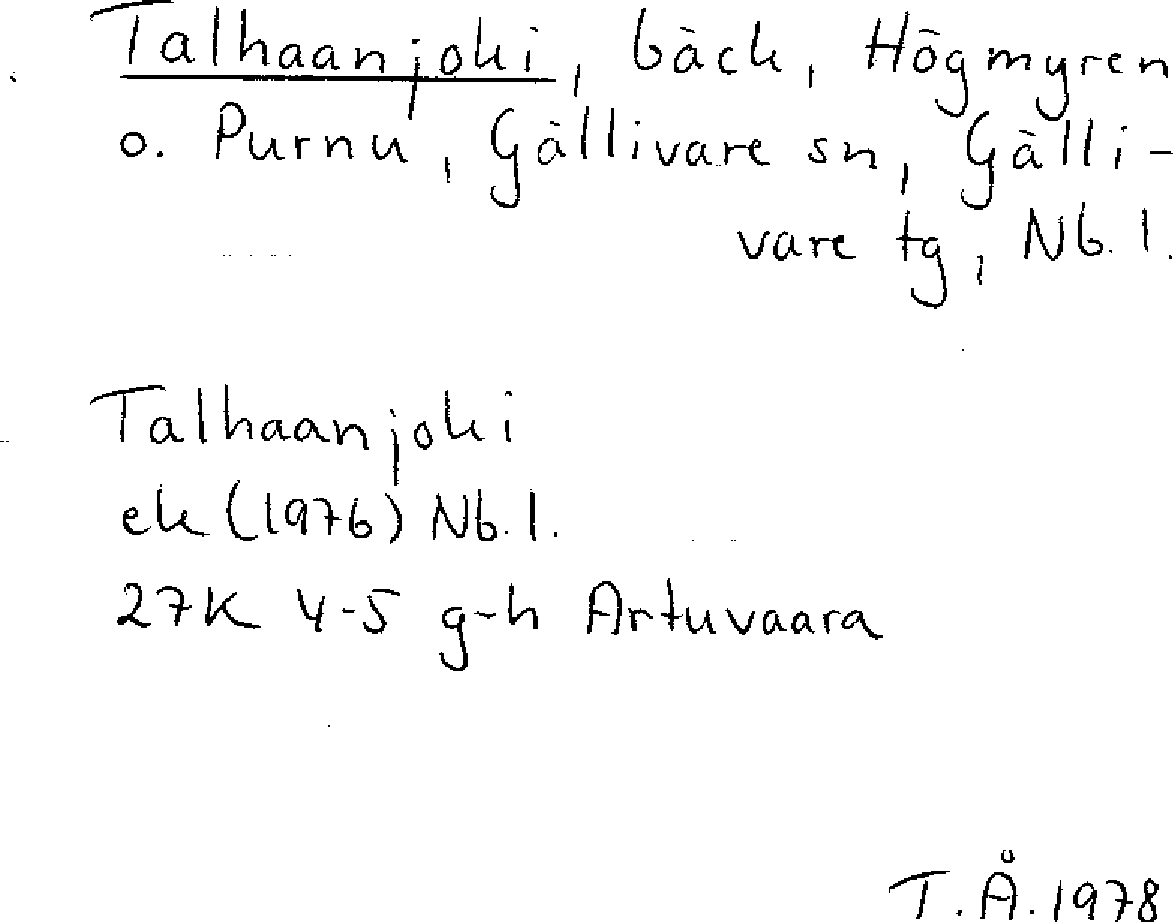 Talhaanjoki, bäck, Högmyren
o. Purnu, Gällivare sn, Gälli-
vare tg, Nb. l.
Talhaanjoki
ek (1976) Nb. l.
27K 4-5 g-h Artuvaara
T.Å. 1978